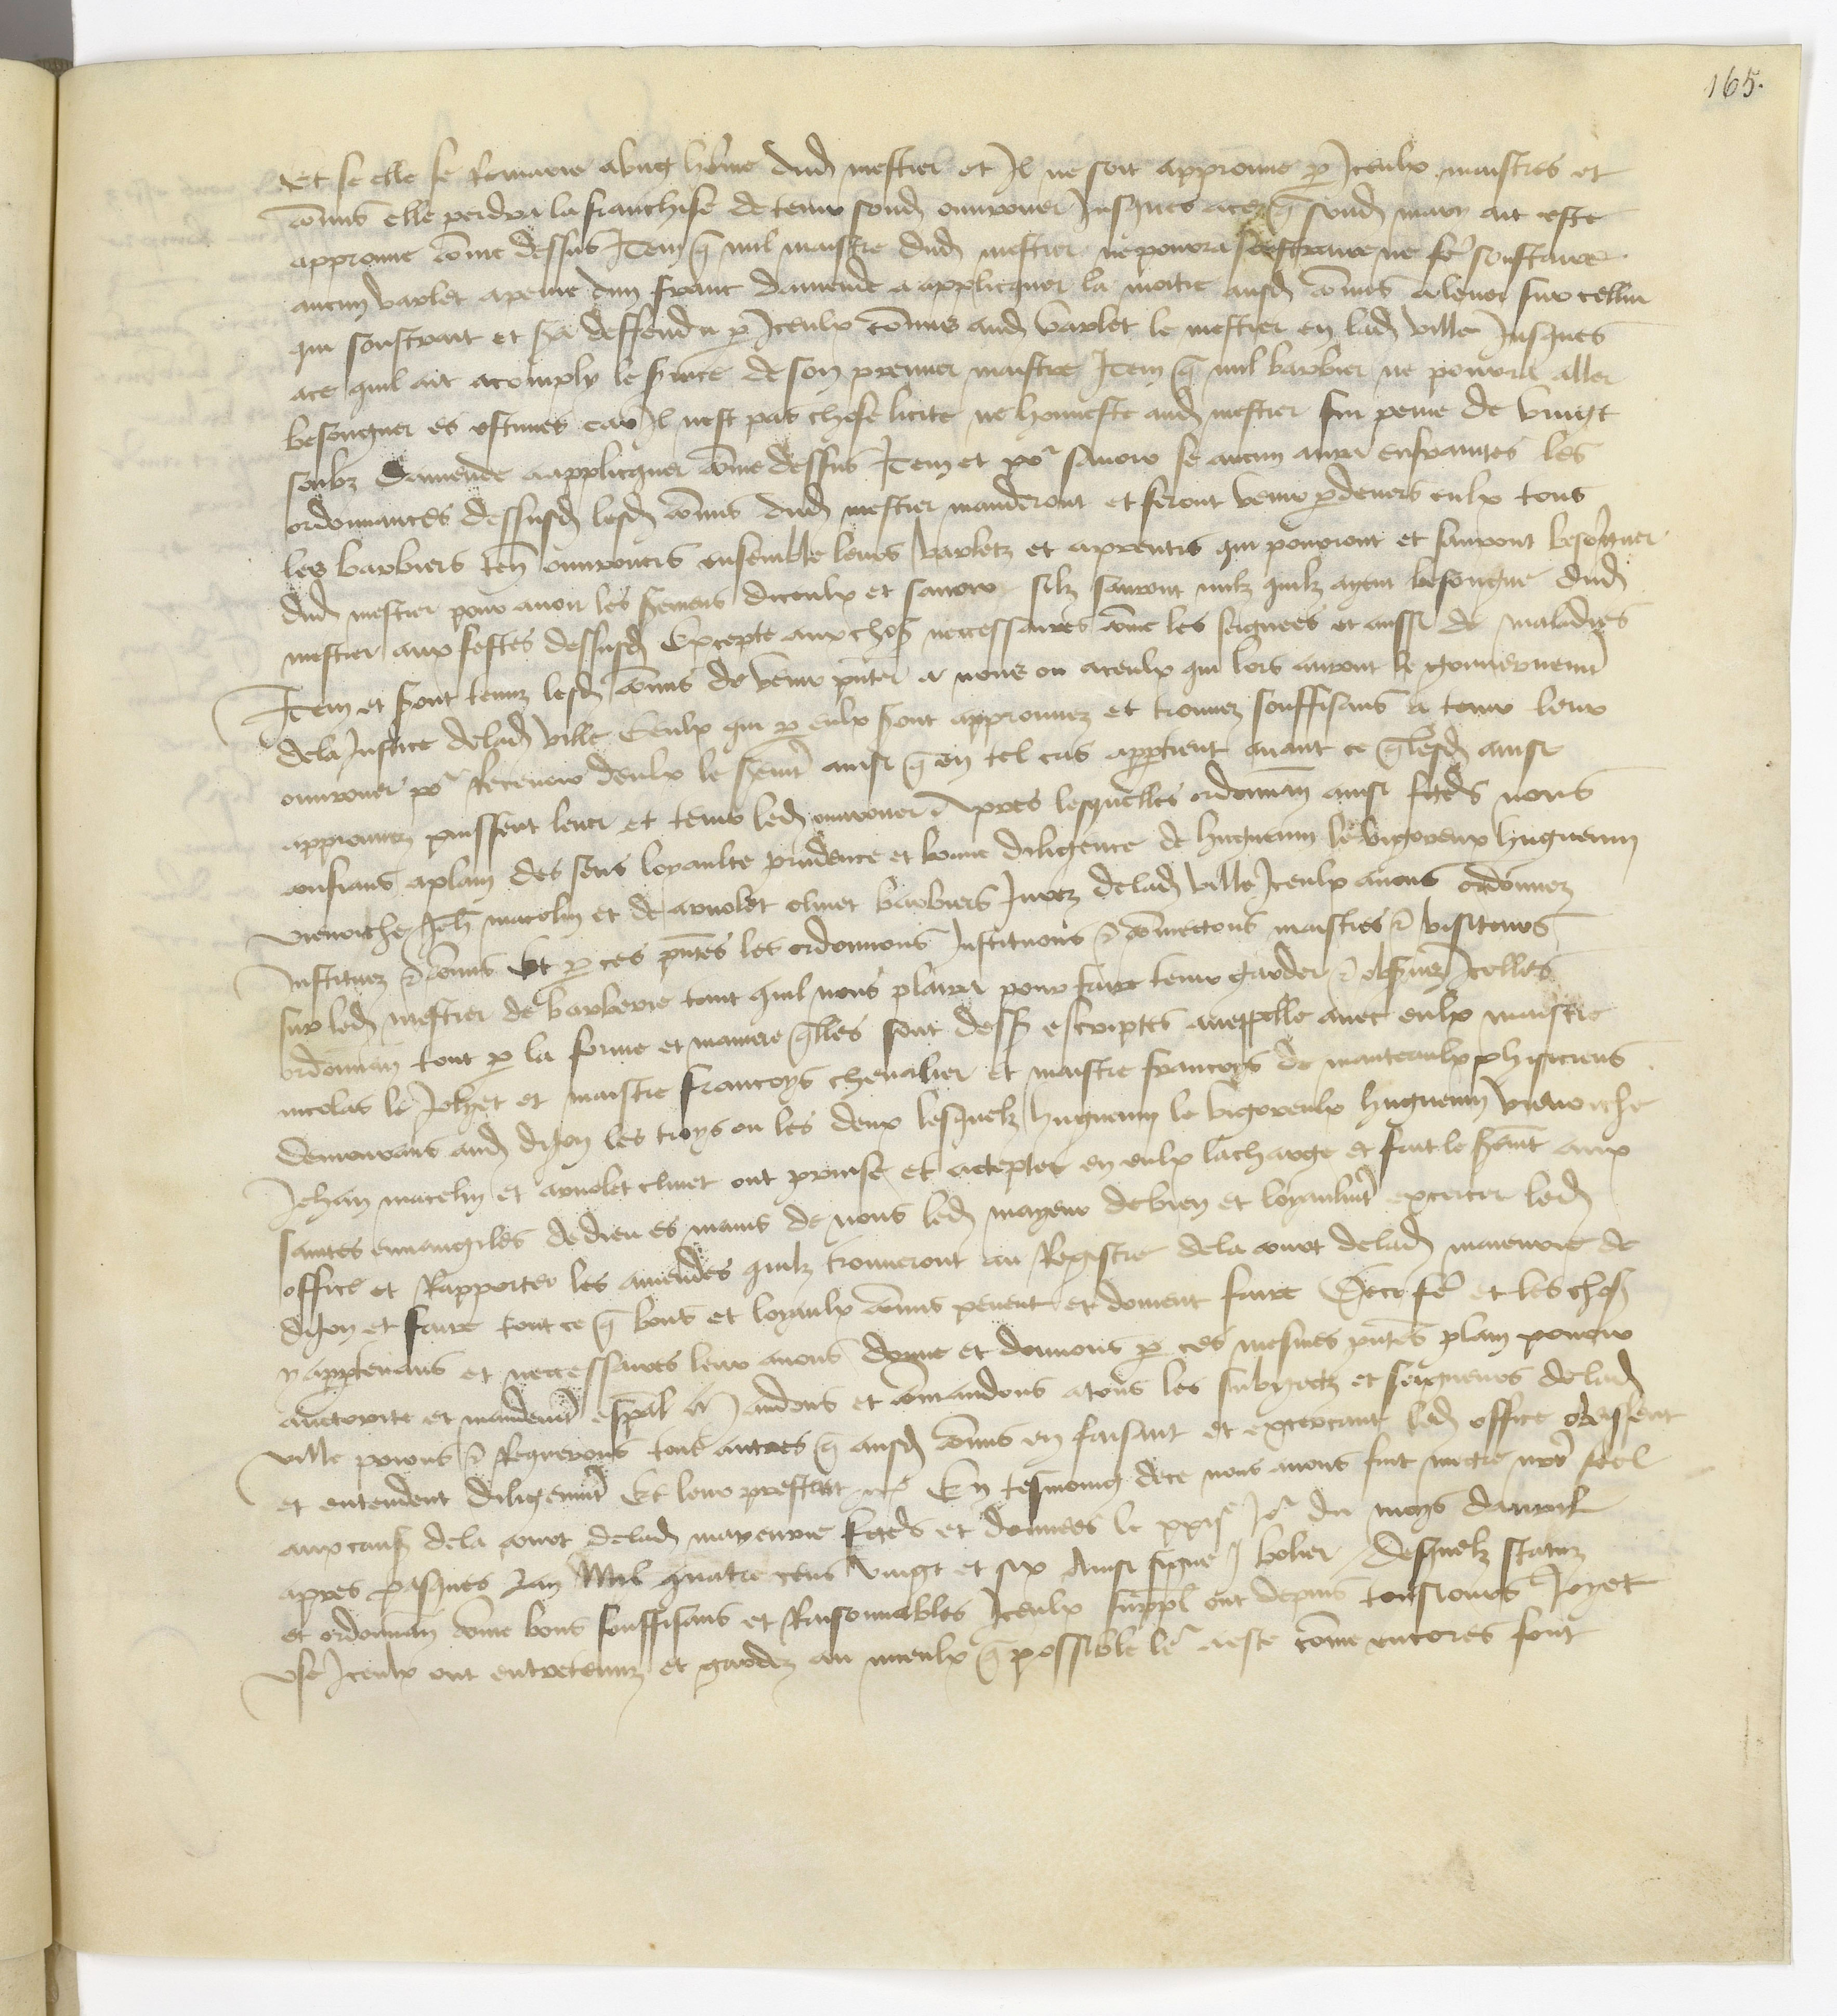 165.
Et se elle se Remarie a ung hom̄e dud mestier et Il ne soit approuue p Iceulx maistres et
com̄is elle perdra la franchise de tenir soud ouurouer Iusques ace q̄ soud mary ait este
approuue com̄e dessus Item q̄ nul maistre dud mestier ne pourra soustraire ne fe soustraire
aucun varlet a peine dun franc damende a applicquer la moitie ausd com̄is a leuer sur cellui
qui soustrait et sera deffendu p Iceulx com̄is aud varlet le mestier en lad ville Iusques
ace quil ait acomply le seruice de son premier maistre Item q̄ nul barbier ne pourra aller
besongner es estuues car Il nest pas chose licite ne honneste aud mestier sur peine de vingt
soulz damende a applicquer com̄e dessus Item et por sauoir se aucun aura enfraintes les
ordonnances dessusd lesd com̄is dud mestier manderont et feront venir pdeuers eulx tous
les barbiers ten ouurouers ensemble leurs varletz et aprentis qui pourront et sauront besongner
dud mestier pour auoir les seremens diceulx et sauoir silz sauront nulz quilz ayent besongne dud
mestier aux festes dessusd Excepte aux chos neccessaires com̄e les seignees et aussi de maladies
Item et seront tenuz lesd com̄is de venir pn̄ter a nous ou a ceulx qui lors auront le gouuernemt
dela Iustice delad ville Ceulx qui p eulx seront approuuez et trouuez souffisans a tenir leur
ouurouer por Receuoir deulx le seremt ainsi q̄ en tel cas appartient auant ce q̄ lesd ainsi
approuuez puissent leuer et tenir led ouurouer Apres lesquelles ordonnan ainsi fctes nous
confians a plain des sens loyaulte prudence et bonne diligence de huguenin le vigoreux huguenin
vienoiche Jeh macelin et de arnolet climet barbiers Iurez delad ville Iceulx auons ordonnez
Instituez & com̄is Et p ces pn̄tes les ordonnons Instituons & com̄ectons maistres & visiteurs
sur led mestier de barberie tant quil nous plaira pour faire tenir garder & obseruer Icelles
ordonnan tout p la forme et maniere q̄lles sont dess escriptes auec appelle auec eulx maistre
nicolas le Jolyet et maistre francoys cheualier et maistre francoys de manteaulx phisiciens
demourans aud dijon les troys ou les deux lesquelz huguenin le vigoreulx huguenin vienoiche
Jehan macelin et arnolet climet ont prinse et acceptee en eulx la charge et fait le seremt aux
saintes euuangiles de dieu es mains de nous led mayeur de bien et loyaulmt excercer led
office et Rapporter les amendes quilz trouueront au Registre dela court delad mairie de
dijon et faire tout ce q̄ bons et loyaulx com̄is peuent et doiuent faire De ce fe et les chos
y appartenans et neccessaires leur auons donne et donnons p ces mesmes pn̄tes plain pouoir
auctorite et mandemt esp̄al Mandons et com̄andons a tous les subgectz et seigneurs delad
ville prions & Requerons tous autres q̄ ausd com̄is en faisant et excercant led office obeissent
et entendent diligemmt Et leur prestent etc En tesmoing dece nous auons fait mectre notre seel
aux causes dela court delad mayeurie fctes et donnees le jor du moys dauril
apres pasques Lan Mil quatre cens vingt et six Ainsi signe J bolier Desquelz statuz
et ordonnan com̄e bons souffisans et Raisonnables Iceulx suppl ont depuis tousiours Joyet
vse Iceulx ont entretenuz et gardez au mieulx q̄ possible ler a este com̄e encores font